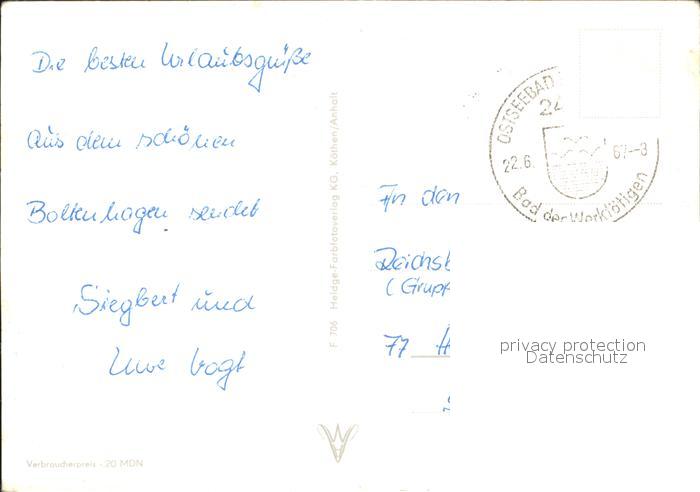 Die besten Urlaubsgrüße
aus dem schönen
Boltenhagen sendet
Siegbert und
Uwe Vogt
Verbraucherpreis -.20 MDN
F 706 Heldge-Farbfotoverlag KG, Köthen/Anhalt
OSTSEEBAD
24
22.6. 67--8
Bad der Werktätigen
An den
Reichsb
(Grupp
77 H
privacy protection
Datenschutz